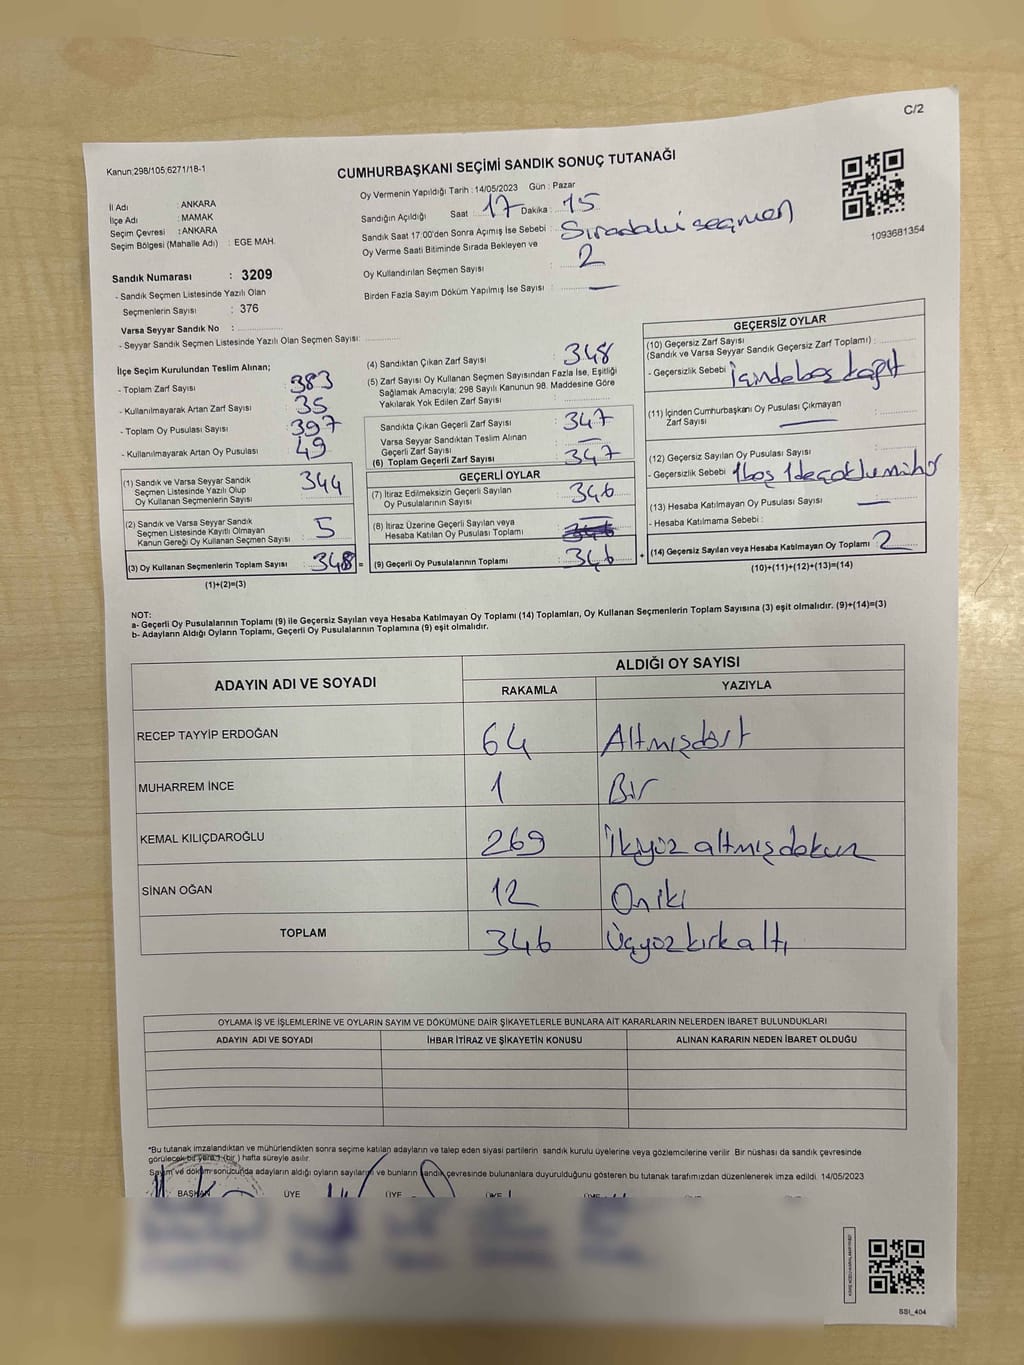 C/2
Kanun;298/105;6271/18-1
CUMHURBAŞKANI SEÇİMİ SANDIK SONUÇ TUTANAĞI
İl Adı : ANKARA
İlçe Adı : MAMAK
Seçim Çevresi : ANKARA
Seçim Bölgesi (Mahalle Adı) : EGE MAH.
Oy Vermenin Yapıldığı Tarih : 14/05/2023 Gün : Pazar
Sandığın Açıldığı Saat 17 Dakika : 15
Sandık Saat 17:00'den Sonra Açımış İse Sebebi : Sıradaki seçmen
Oy Verme Saati Bitiminde Sırada Bekleyen ve
Oy Kullandırılan Seçmen Sayısı : 2
Birden Fazla Sayım Döküm Yapılmış İse Sayısı : —
1093681354
Sandık Numarası : 3209
- Sandık Seçmen Listesinde Yazılı Olan
Seçmenlerin Sayısı : 376
Varsa Seyyar Sandık No :
- Seyyar Sandık Seçmen Listesinde Yazılı Olan Seçmen Sayısı:
İlçe Seçim Kurulundan Teslim Alınan;
- Toplam Zarf Sayısı : 383
- Kullanılmayarak Artan Zarf Sayısı : 35
- Toplam Oy Pusulası Sayısı : 397
- Kullanılmayarak Artan Oy Pusulası : 49
(1) Sandık ve Varsa Seyyar Sandık
Seçmen Listesinde Yazılı Olup
Oy Kullanan Seçmenlerin Sayısı : 344
(2) Sandık ve Varsa Seyyar Sandık
Seçmen Listesinde Kayıtlı Olmayan
Kanun Gereği Oy Kullanan Seçmen Sayısı : 5
(3) Oy Kullanan Seçmenlerin Toplam Sayısı : 348 =
(1)+(2)=(3)
(4) Sandıktan Çıkan Zarf Sayısı : 348
(5) Zarf Sayısı Oy Kullanan Seçmen Sayısından Fazla İse, Eşitliği
Sağlamak Amacıyla; 298 Sayılı Kanunun 98. Maddesine Göre
Yakılarak Yok Edilen Zarf Sayısı :
Sandıkta Çıkan Geçerli Zarf Sayısı : 347
Varsa Seyyar Sandıktan Teslim Alınan
Geçerli Zarf Sayısı : —
(6) Toplam Geçerli Zarf Sayısı : 347
GEÇERLİ OYLAR
(7) İtiraz Edilmeksizin Geçerli Sayılan
Oy Pusulalarının Sayısı : 346
(8) İtiraz Üzerine Geçerli Sayılan veya
Hesaba Katılan Oy Pusulası Toplamı :
(9) Geçerli Oy Pusulalarının Toplamı : 346 +
GEÇERSİZ OYLAR
(10) Geçersiz Zarf Sayısı
(Sandık ve Varsa Seyyar Sandık Geçersiz Zarf Toplamı) :
- Geçersizlik Sebebi : İçinde boş kağıt
(11) İçinden Cumhurbaşkanı Oy Pusulası Çıkmayan
Zarf Sayısı : —
(12) Geçersiz Sayılan Oy Pusulası Sayısı :
- Geçersizlik Sebebi : 1 boş 1 de çoklu mühür
(13) Hesaba Katılmayan Oy Pusulası Sayısı : —
- Hesaba Katılmama Sebebi :
(14) Geçersiz Sayılan veya Hesaba Katılmayan Oy Toplamı : 2
(10)+(11)+(12)+(13)=(14)
NOT:
a- Geçerli Oy Pusulalarının Toplamı (9) ile Geçersiz Sayılan veya Hesaba Katılmayan Oy Toplamı (14) Toplamları, Oy Kullanan Seçmenlerin Toplam Sayısına (3) eşit olmalıdır. (9)+(14)=(3)
b- Adayların Aldığı Oyların Toplamı, Geçerli Oy Pusulalarının Toplamına (9) eşit olmalıdır.
ADAYIN ADI VE SOYADI ALDIĞI OY SAYISI
RAKAMLA YAZIYLA
RECEP TAYYİP ERDOĞAN 64 Altmışdört
MUHARREM İNCE 1 Bir
KEMAL KILIÇDAROĞLU 269 İkiyüz altmış dokuz
SİNAN OĞAN 12 On iki
TOPLAM 346 Üçyüz kırk altı
OYLAMA İŞ VE İŞLEMLERİNE VE OYLARIN SAYIM VE DÖKÜMÜNE DAİR ŞİKAYETLERLE BUNLARA AİT KARARLARIN NELERDEN İBARET BULUNDUKLARI
ADAYIN ADI VE SOYADI İHBAR İTİRAZ VE ŞİKAYETİN KONUSU ALINAN KARARIN NEDEN İBARET OLDUĞU
*Bu tutanak imzalandıktan ve mühürlendikten sonra seçime katılan adayların ve talep eden siyasi partilerin sandık kurulu üyelerine veya gözlemcilerine verilir. Bir nüshası da sandık çevresinde
görülecek bir yere 1 (bir) hafta süreyle asılır.
Sayım ve döküm sonucunda adayların aldığı oyların sayıları ve bunların sandık çevresinde bulunanlara duyurulduğunu gösteren bu tutanak tarafımızdan düzenlenerek imza edildi. 14/05/2023
BAŞKAN ÜYE ÜYE ÜYE ÜYE
SSI_404